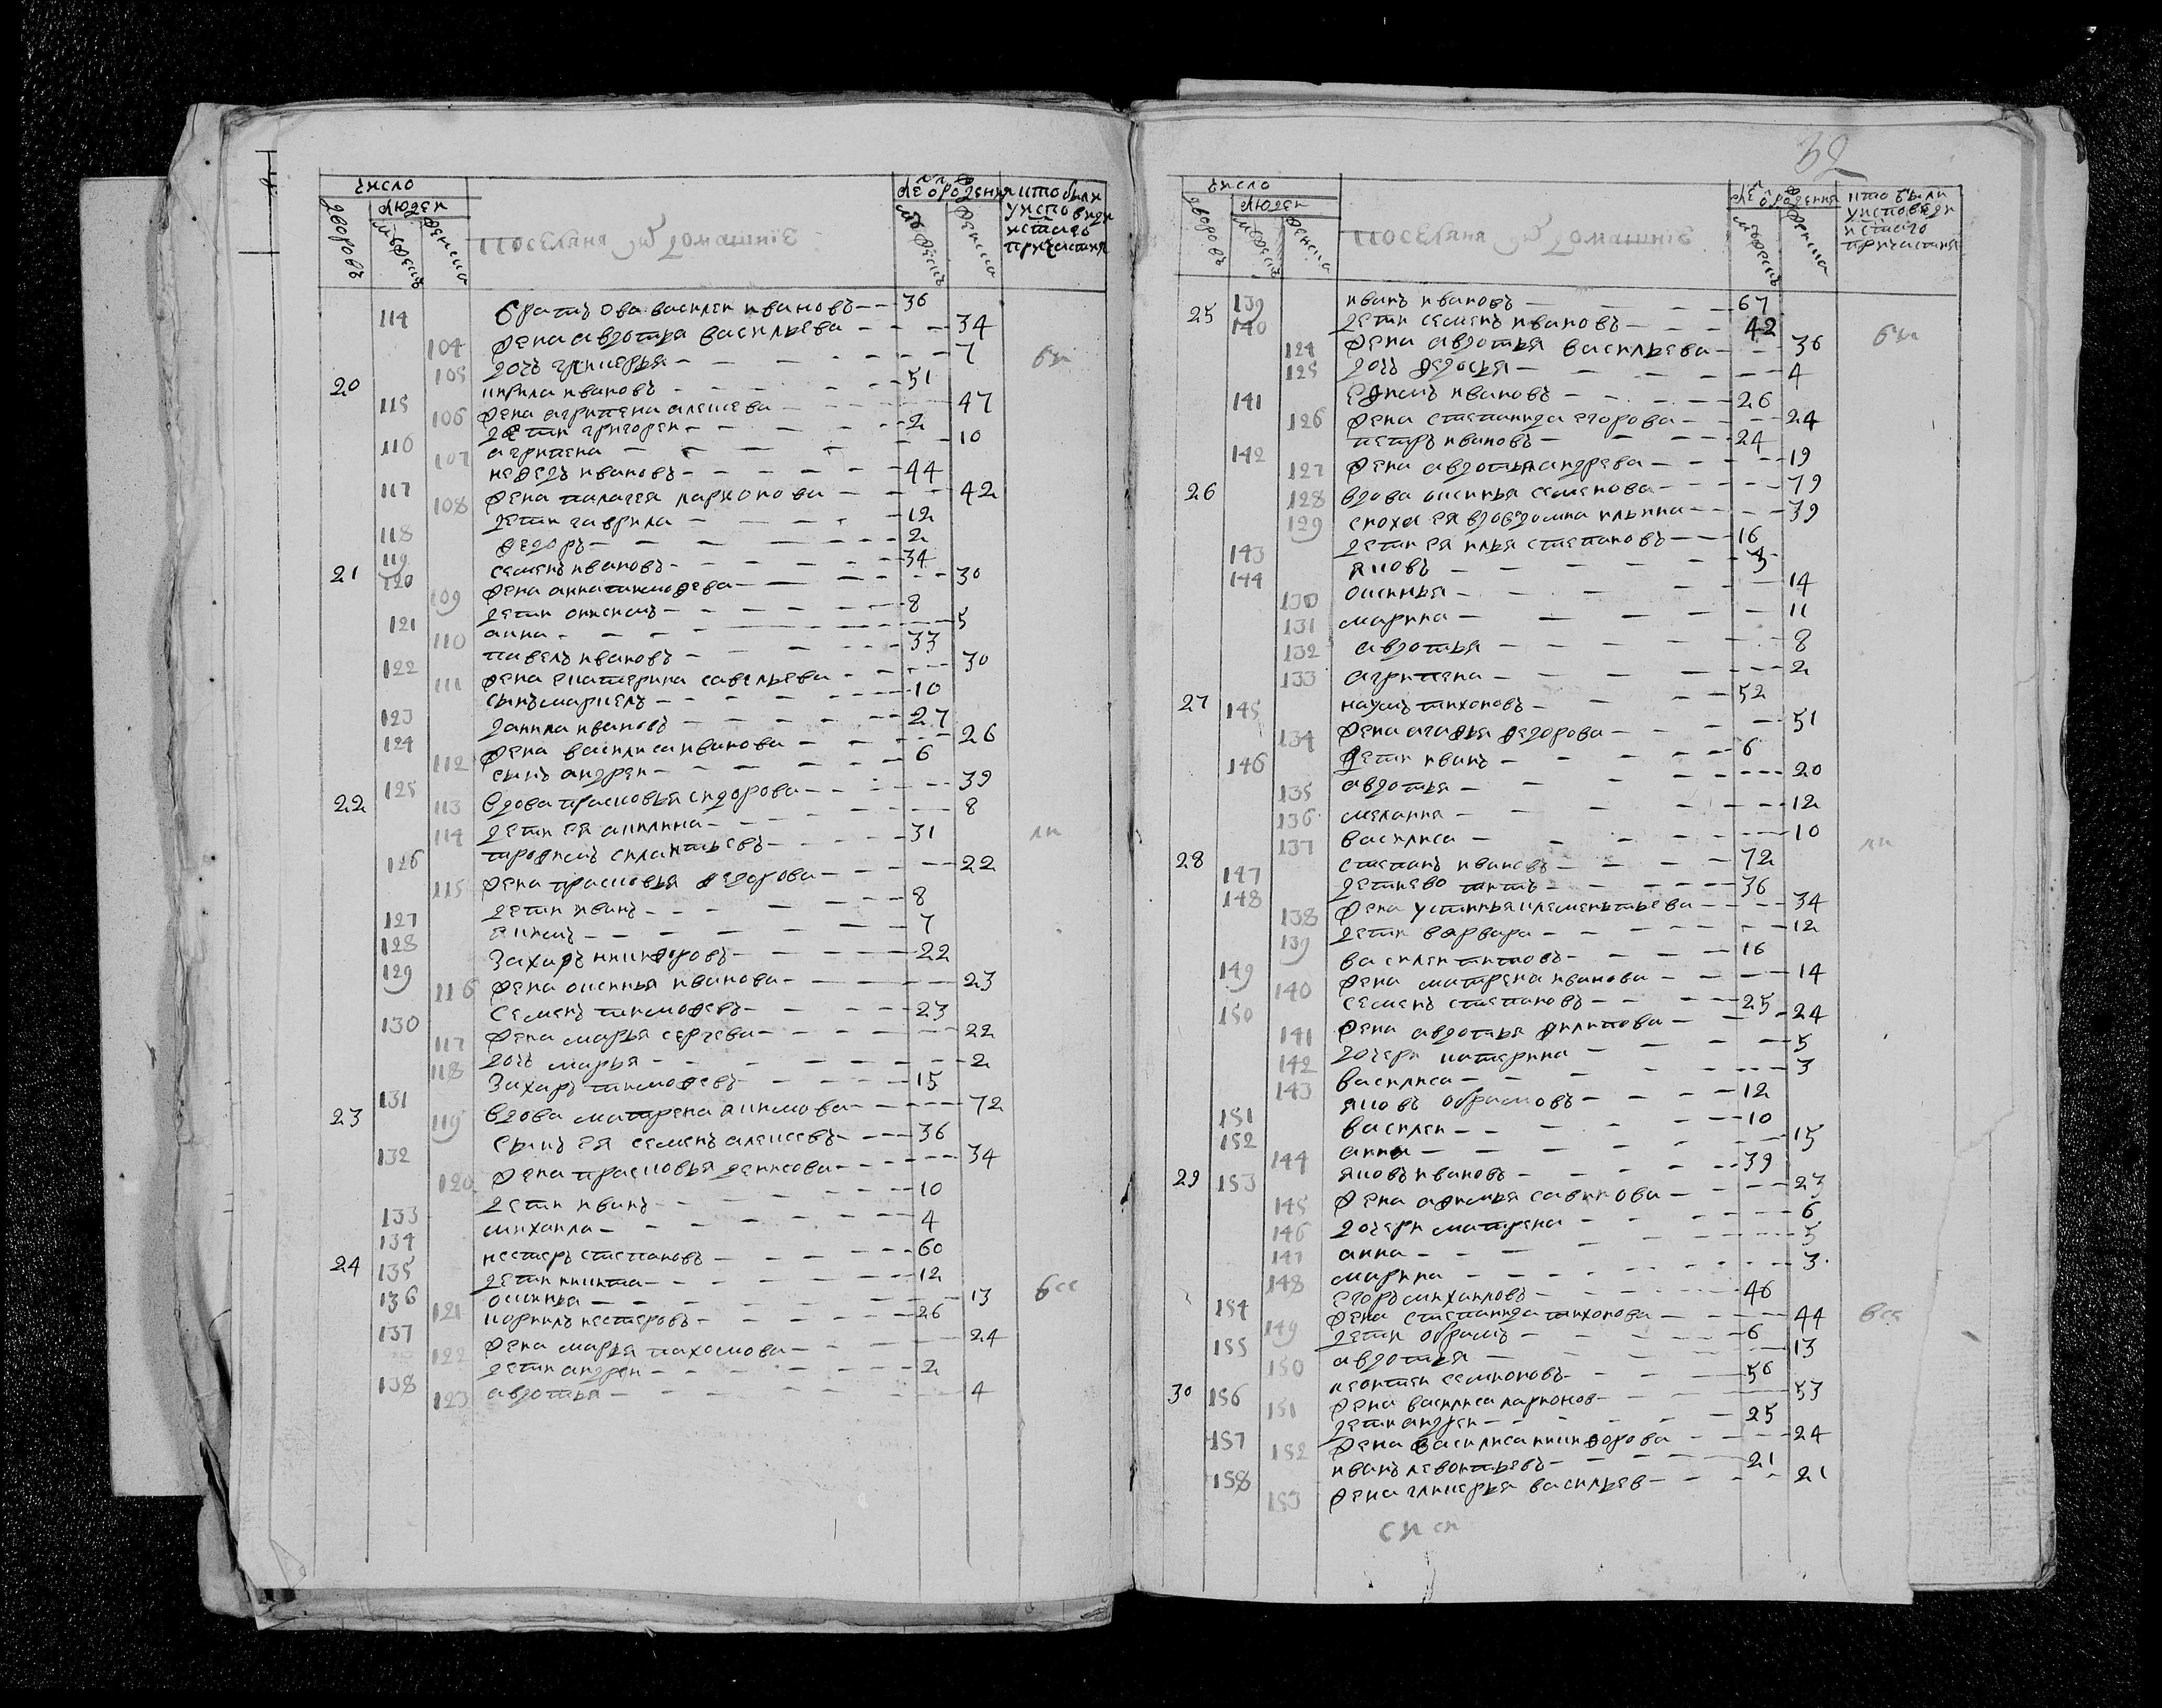 число
людей
дворовъ
мужескъ
женска
поселяня з домашнiе
лета от рождения
мужескъ
женска
кто были у исповеди и стаго причастия
114 братъ ева василеи ивановъ 36
104 жена авдотья васильева 34
105 дочь гликерья 7
20 115 кирила ивановъ 51
106 жена агрипена алексева 47
116 дети григореи 2
107 агрипена 10
117 нефедъ ивановъ 44
108 жена палагея ларионова 42
118 дети гаврила 12
119 федоръ 2
21 120 семенъ ивановъ 34
109 жена анна тимофева 30
121 дети онисимъ 8
110 анна 5
122 павелъ ивановъ 33
111 жена екатерина савельева 30
123 сынъ маркелъ 10
124 данила ивановъ 27
112 жена василиса иванова 26
125 сынъ андреи 6
22 113 вдова прасковья сидорова 39
114 дети ея акилина 8
126 трофимъ силантьевъ 31
115 жена прасковья федорова 22
127 дети иванъ 8
128 екимъ 7
129 захаръ никифоровъ 22
116 жена оксинья иванова 23
130 семенъ тимофевъ 23
117 жена марья сергева 22
118 дочь марья 2
131 захаръ тимофевъ 15
23 119 вдова матрена якимова 72
132 сынъ ея семенъ алексевъ 36
120 жена прасковья денисова 34
133 дети иванъ 10
134 михаила 4
24 135 нестеръ степановъ 60
136 дети никита 12
121 оксинья 13
137 корнилъ нестеровъ 26
122 жена марья пахомова 24
138 дети андреи 2
123 авдотья 4
все
32
число
людей
дворовъ
мужескъ
женска
поселяня з домашнiе
лета от рождения
мужескъ
женска
кто были у исповеди и стаго причастия
25 139 иванъ ивановъ 67
140 дети семенъ ивановъ 42
124 жена авдотья васильева 36
125 дочь федосья 4
141 ефимъ ивановъ 26
126 жена степанида егорова 24
142 петръ ивановъ 24
127 жена авдотья андрева 19
26 128 вдова оксинья семенова 79
129 сноха ея вдова домна ильина 39
143 дети ея илья степановъ 16
144 яковъ 3
130 оксинья 14
131 марина 11
132 авдотья 8
133 агрипена 2
27 145 наумъ тихоновъ 52
134 жена агафья федорова 51
146 дети иванъ 6
135 авдотья 20
136 мелания 12
137 василиса 10
28 147 степанъ ивановъ 72
148 дети ево титъ 36
138 жена устинья клементьева 34
139 дети варвара 12
149 василеи титовъ 16
140 жена матрена иванова 14
150 семенъ степановъ 25
141 жена авдотья филипова 24
142 дочери катерина 5
143 василиса 3
151 яковъ обрамовъ 12
152 василеи 10
144 анна 15
29 153 яковъ ивановъ 39
145 жена афимья савинова 23
146 дочери матрена 6
147 анна 5
148 марина 3
154 егоръ михаиловъ 46
149 жена степанида тихонова 44
155 дети обрамъ 6
150 авдотья 13
30 156 леонтеи семионовъ 56
151 жена василиса ларионов 53
157 дети андреи 25
152 жена василиса никифорова 24
158 иванъ левонтьевъ 21
153 жена гликерья васильев 21
все